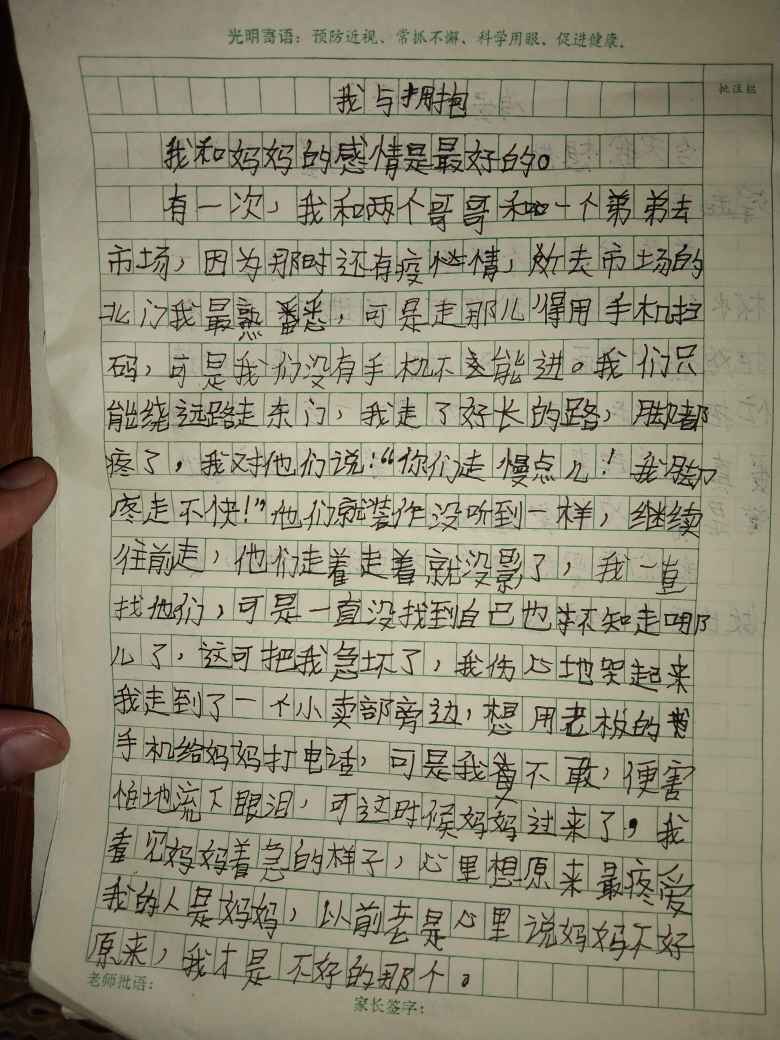 光明寄语：预防近视、常抓不懈、科学用眼、促进健康.
批注栏
我与拥抱
我和妈妈的感情是最好的。
有一次，我和两个哥哥和一个弟弟去
市场，因为那时还有疫情，所去市场的
北门我最熟悉，可是走那儿得用手机扫
码，可是我们没有手机不能进。我们只
能绕远路走东门，我走了好长的路，脚都
疼了，我对他们说：“你们走慢点儿！我脚
疼走不快！”他们就装作没听到一样，继续
往前走，他们走着走着就没影了，我一直
找他们，可是一直没找到自己也不知走哪
儿了，这可把我急坏了，我伤心地哭起来
我走到了一个小卖部旁边，想用老板的
手机给妈妈打电话，可是我真不敢，便害
怕地流下眼泪，可这时候妈妈过来了，我
看见妈妈着急的样子，心里想原来最疼爱
我的人是妈妈，以前老是心里说妈妈不好
原来，我才是不好的那个。
老师批语：
家长签字：